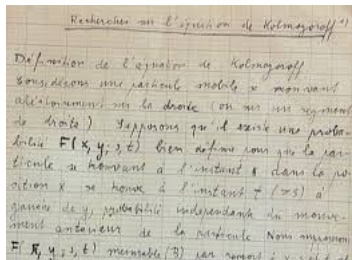 Recherches sur l'équation de Kolmogoroff 1)
Définition de l'équation de Kolmogoroff.
Considérons une particule mobile x mouvant
aléatoirement sur la droite (ou sur un segment
de droite) Supposons qu'il existe une proba-
bilité F(x, y; s, t) bien définie pour que la par-
ticule se trouvant à l'instant s dans la po-
sition x se trouve à l'instant t (> s) à
gauche de y, probabilité indépendante du mouve-
ment antérieur de la particule. Nous supposons
F(x, y; s, t) mesurable (B) par rapport à x